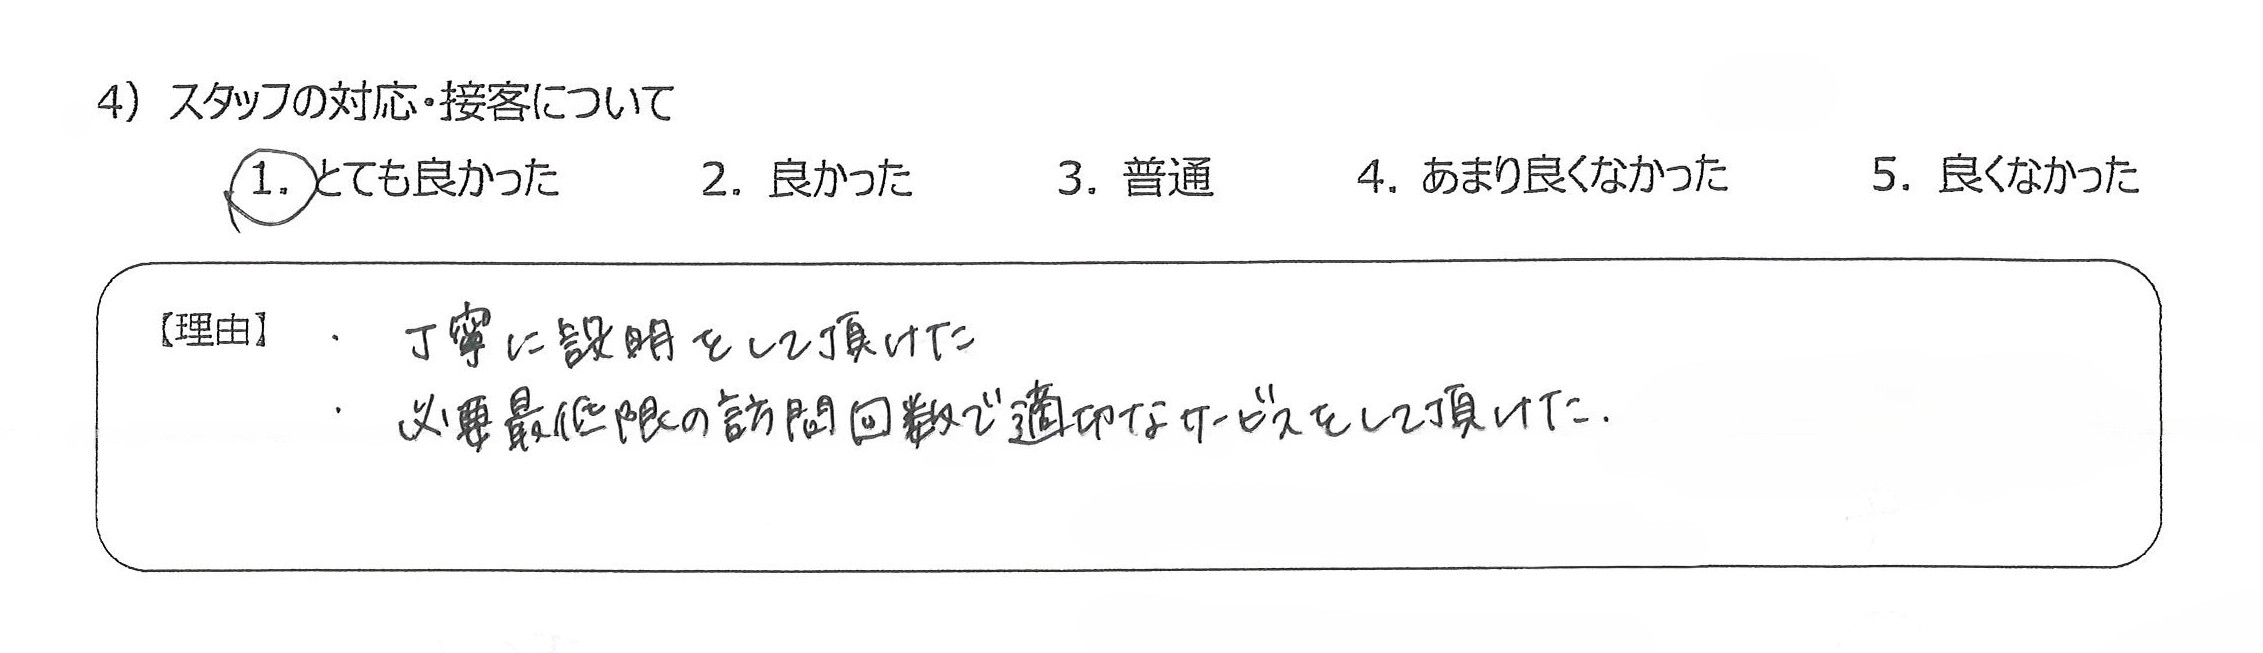 4）スタッフの対応・接客について
1. とても良かった 2. 良かった 3. 普通 4. あまり良くなかった 5. 良くなかった
【理由】・丁寧に説明をして頂けた
・必要最低限の訪問回数で適切なサービスをして頂けた.